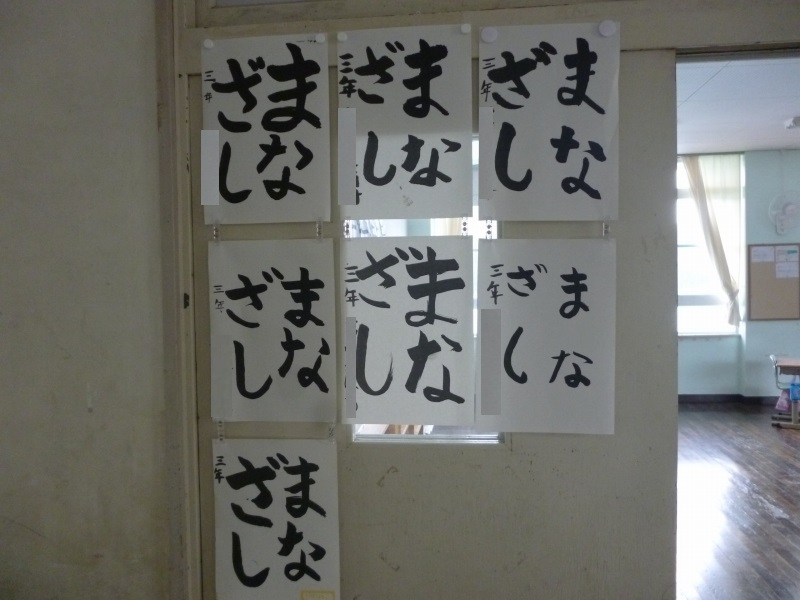 まな
ざし
三年
まな
ざし
三年
まな
ざし
三年
まな
ざし
三年
まな
ざし
三年
まな
ざし
三年
まな
ざし
三年